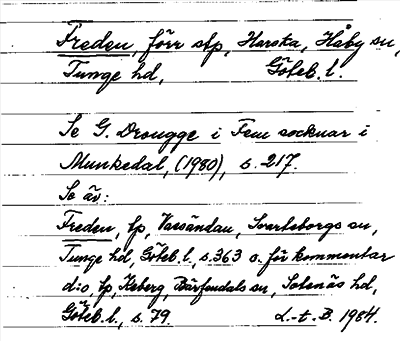 Freden, förr stp, Harska, Håby sn,
Tunge hd, Göteb. l.
Se G. Drougge i Fem socknar i
Munkedal, (1980), s. 217.
Se äv:
Freden, tp, Vassändan, Svarteborgs sn,
Tunge hd, Göteb. l., s. 363 o. för kommentar
d:o, tp, Keberg, Bärfendals sn, Sotenäs hd,
Göteb. l., s. 79. L.-t. B. 1984.